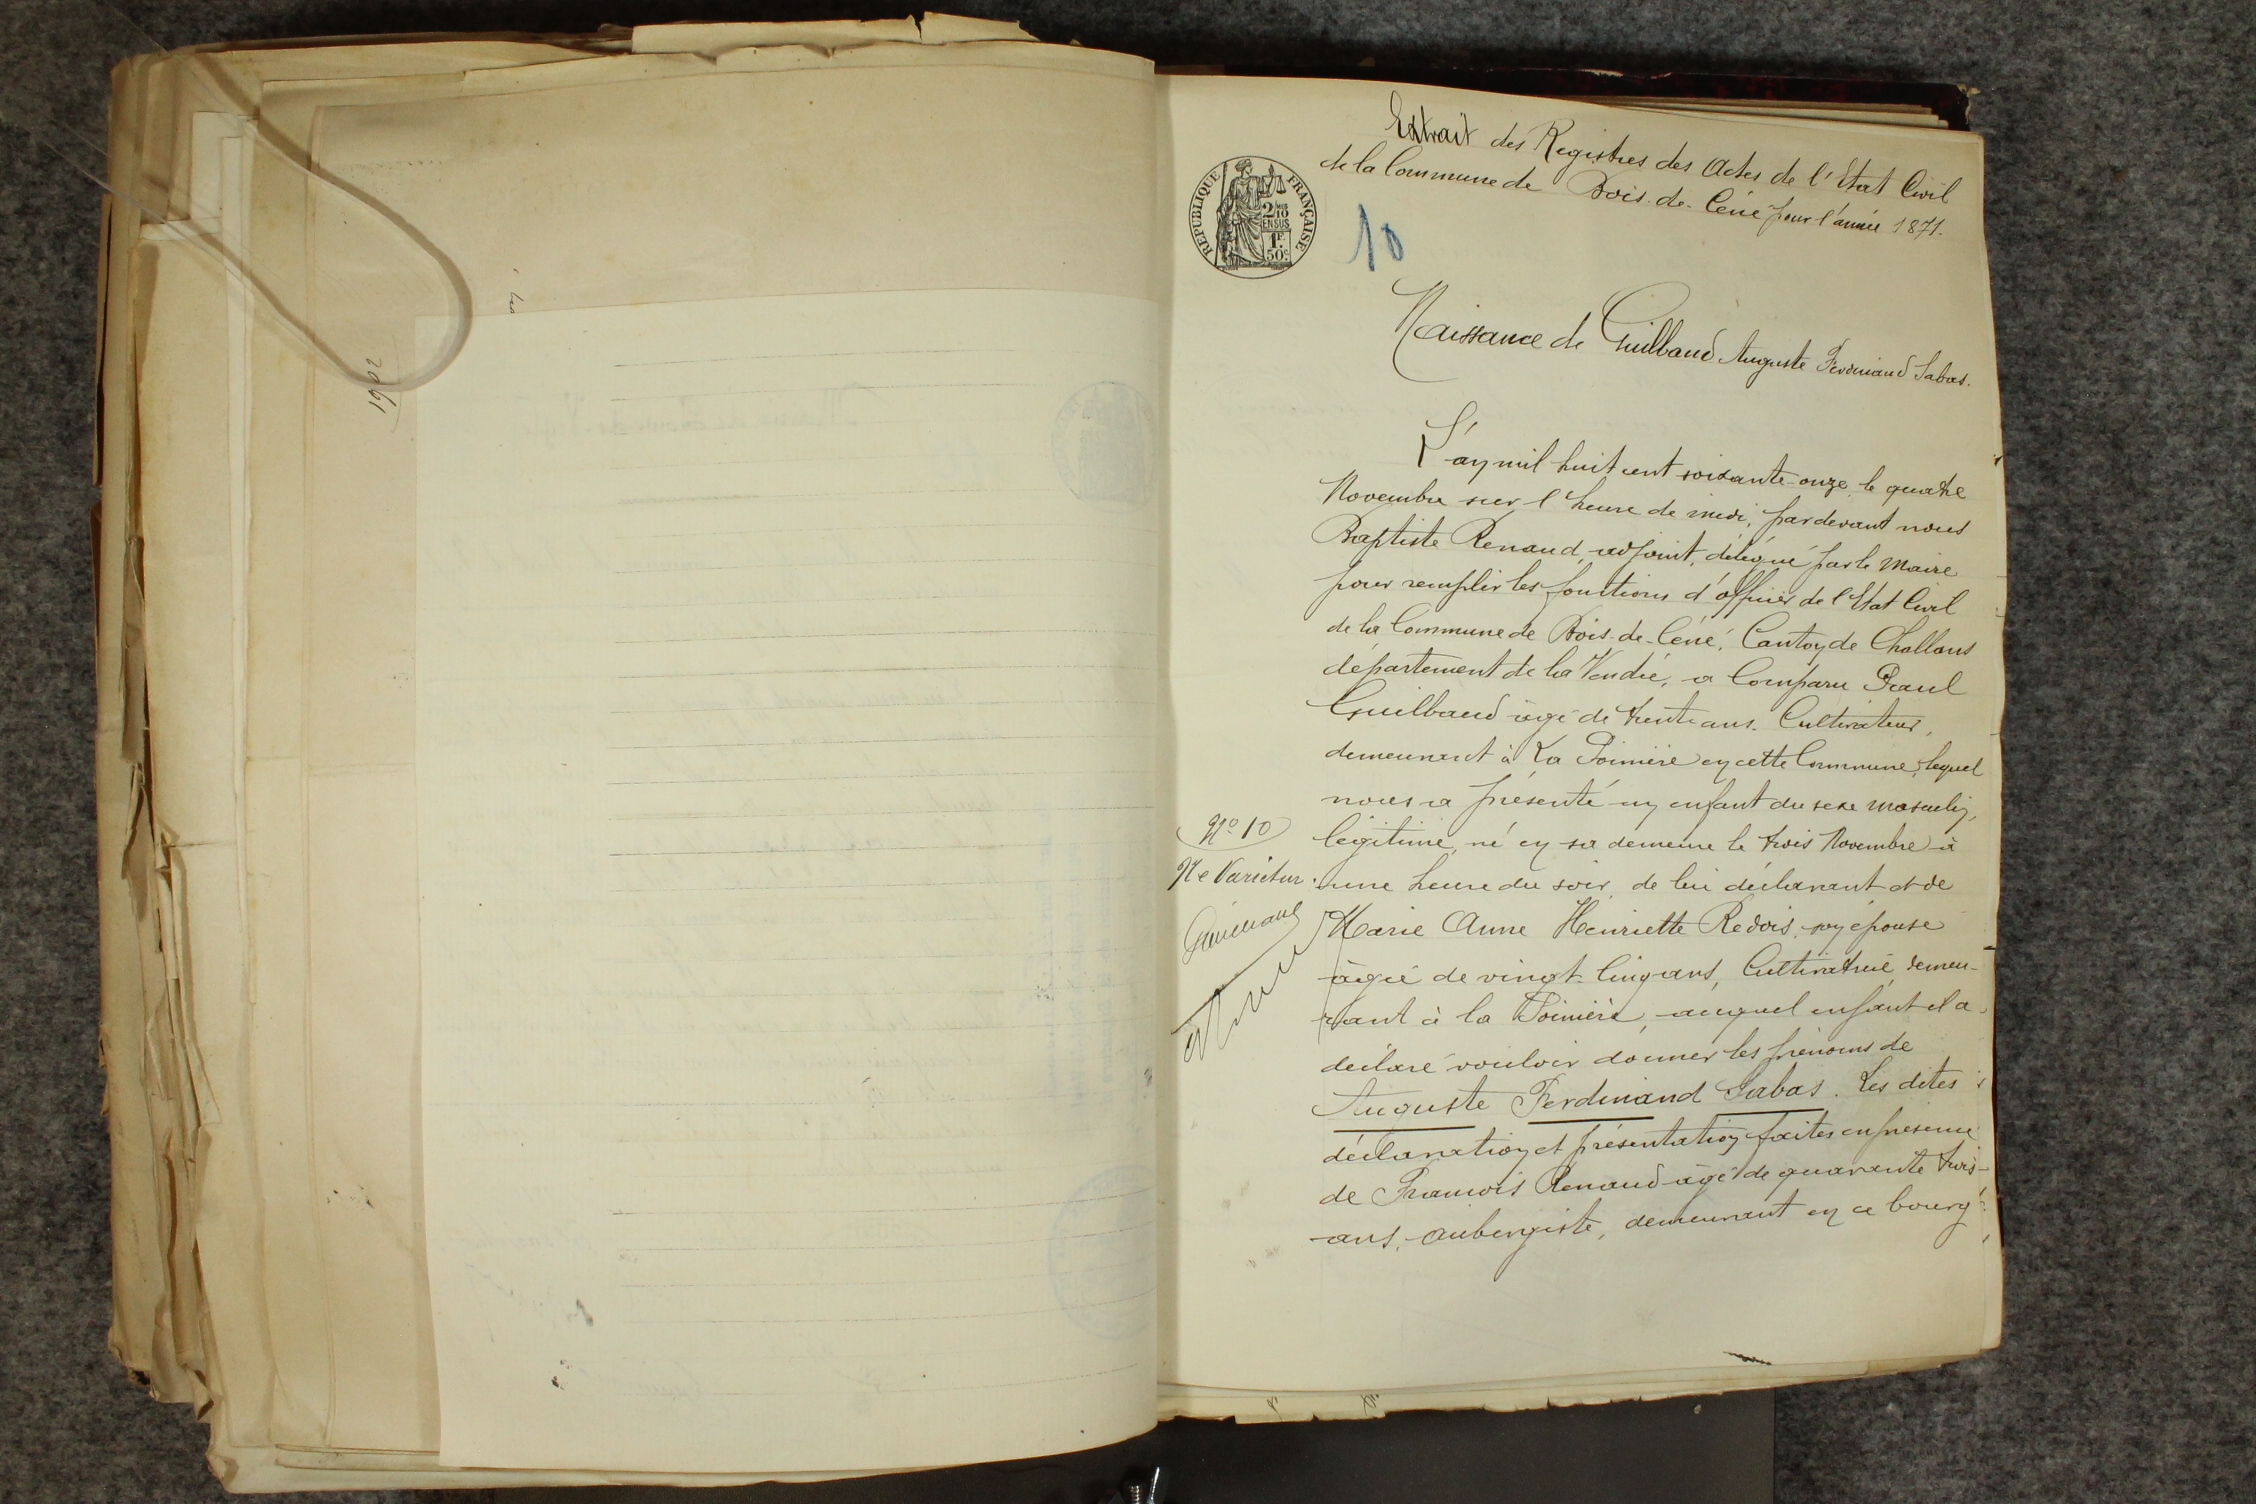 1902
Extrait des Registres des Actes de l'Etat Civil
de la Commune de Bois-de-Céné pour l'année 1871.
RÉPUBLIQUE FRANÇAISE
2/10
EN SUS
1F.
50c.
10
Naissance de Guilbaud Auguste Ferdinand Sabas.
L'an mil huit cent soixante-onze, le quatre
Novembre sur l'heure de midi, pardevant nous
Baptiste Renaud, adjoint, délégué par le Maire
pour remplir les fonctions d'officier de l'Etat Civil
de la Commune de Bois-de-Céné, Canton de Challans
département de la Vendée, a Comparu Paul
Guilbaud âgé de trente ans. Cultivateur,
demeurant à La Poinière en cette Commune, lequel
nous a présenté un enfant du sexe masculin,
légitime, né en sa demeure le trois Novembre à
une heure du soir, de lui déclarant et de
Marie Anne Henriette Redois, son épouse
âgée de vingt-Cinq ans, Cultivatrice demeu-
rant à la Poinière, auquel enfant il a
déclaré vouloir donner les prénoms de
Auguste Ferdinand Sabas. Les dites
déclaration et présentation faites en présence
de François Renaud âgé de quarante trois
ans, aubergiste, demeurant en ce bourg
No 10
Ne Varietur.